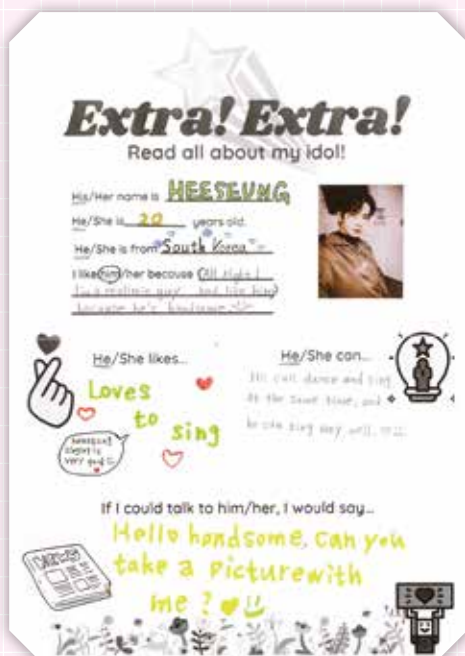 Extra! Extra!
Read all about my idol!
His/Her name is HEESEUNG
He/She is 20 years old.
He/She is from South Korea
I like him/her because (All right I
I'm a realistic guy, and like him)
because he's handsome.
He/She likes...
Loves
to
sing
very good
He/She can...
He can dance and sing
at the same time, and
he can sing very well.
If I could talk to him/her, I would say...
Hello handsome, can you
take a Picture with
me?